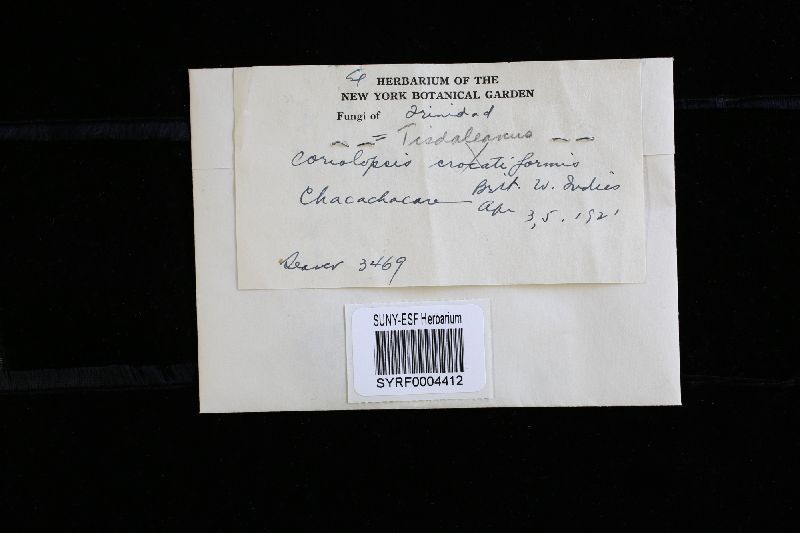 Ex HERBARIUM OF THE
NEW YORK BOTANICAL GARDEN
Fungi of Trinidad
= Tisdaleanus
Coriolopsis crocatiformis
Chacachacare Brit. W. Indies
Apr 3,5, 1921
Seaver 3469
SUNY-ESF Herbarium
SYRF0004412